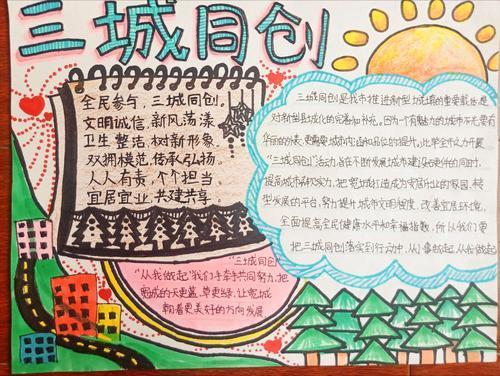 三城同创
全民参与，三城同创。
文明诚信，新风荡漾
卫生整洁，树新形象
双拥模范，传承弘扬
人人有责，个个担当
宜居宜业，共建共享。
三城同创是我市推进新型城镇的重要载体,是
对新型县城化的完善和补充。因为一个有魅力的城市不光要有
华丽的外表,更需要城市内涵和品位的提升，此举全市上下开展
“三城同创”活动,旨在不断发展城市建设硬件的同时，
提高城市品味实力，把
型发展的平台，努力提升城市文明程度，改善宜居环境，
全面提高全民健康水平和幸福指数，所以我们要
把三城同创落实到行动中，从小事做起，从我做起
“三城同创
“从我做起”我们手牵手共同努力，把
宽城的天更蓝，草更绿，让宽城
朝着更美好的方向发展